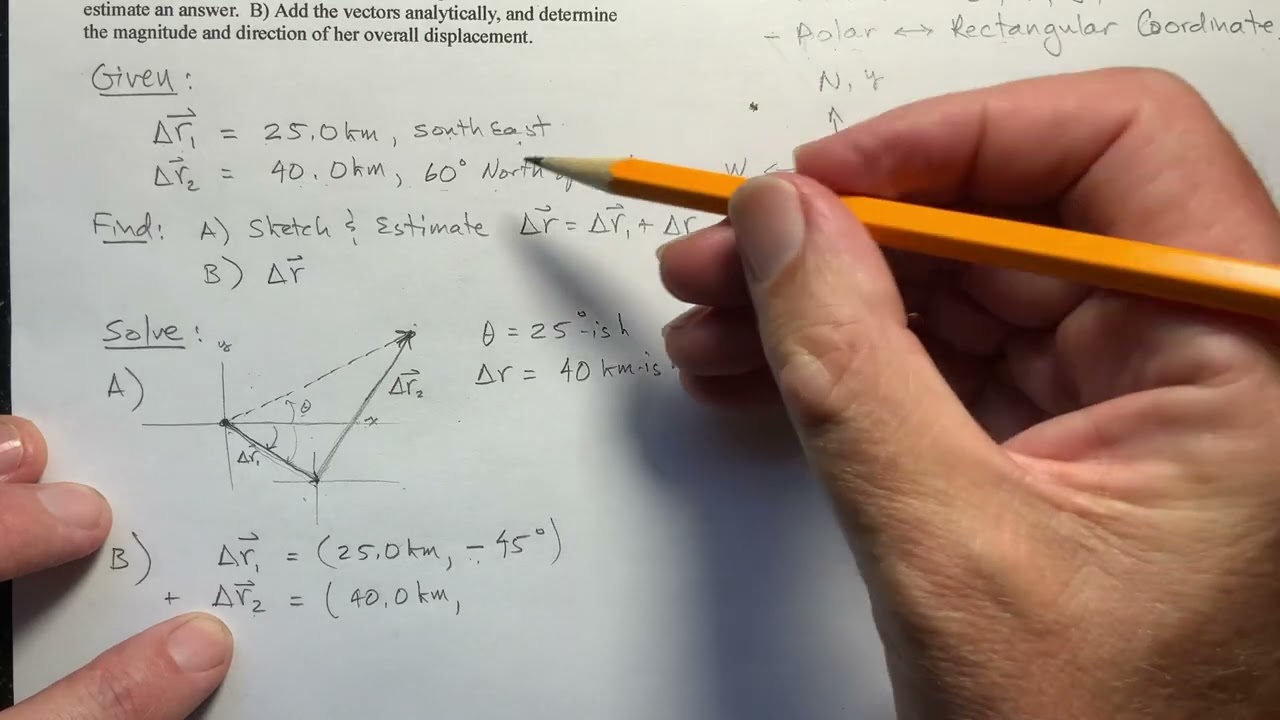 estimate an answer. B) Add the vectors analytically, and determine
the magnitude and direction of her overall displacement.
- Polar ↔ Rectangular Coordinate
N, y
W
Given:
Δr⃗₁ = 25.0 km, South East
Δr⃗₂ = 40.0 km, 60° North
Find: A) Sketch & Estimate Δr⃗ = Δr⃗₁ + Δr
B) Δr⃗
Solve:
A)
y
x
θ
Δr⃗₁
Δr⃗₂
θ = 25°-ish
Δr = 40 km-is
B) Δr⃗₁ = (25.0 km, -45°)
+ Δr⃗₂ = (40.0 km,